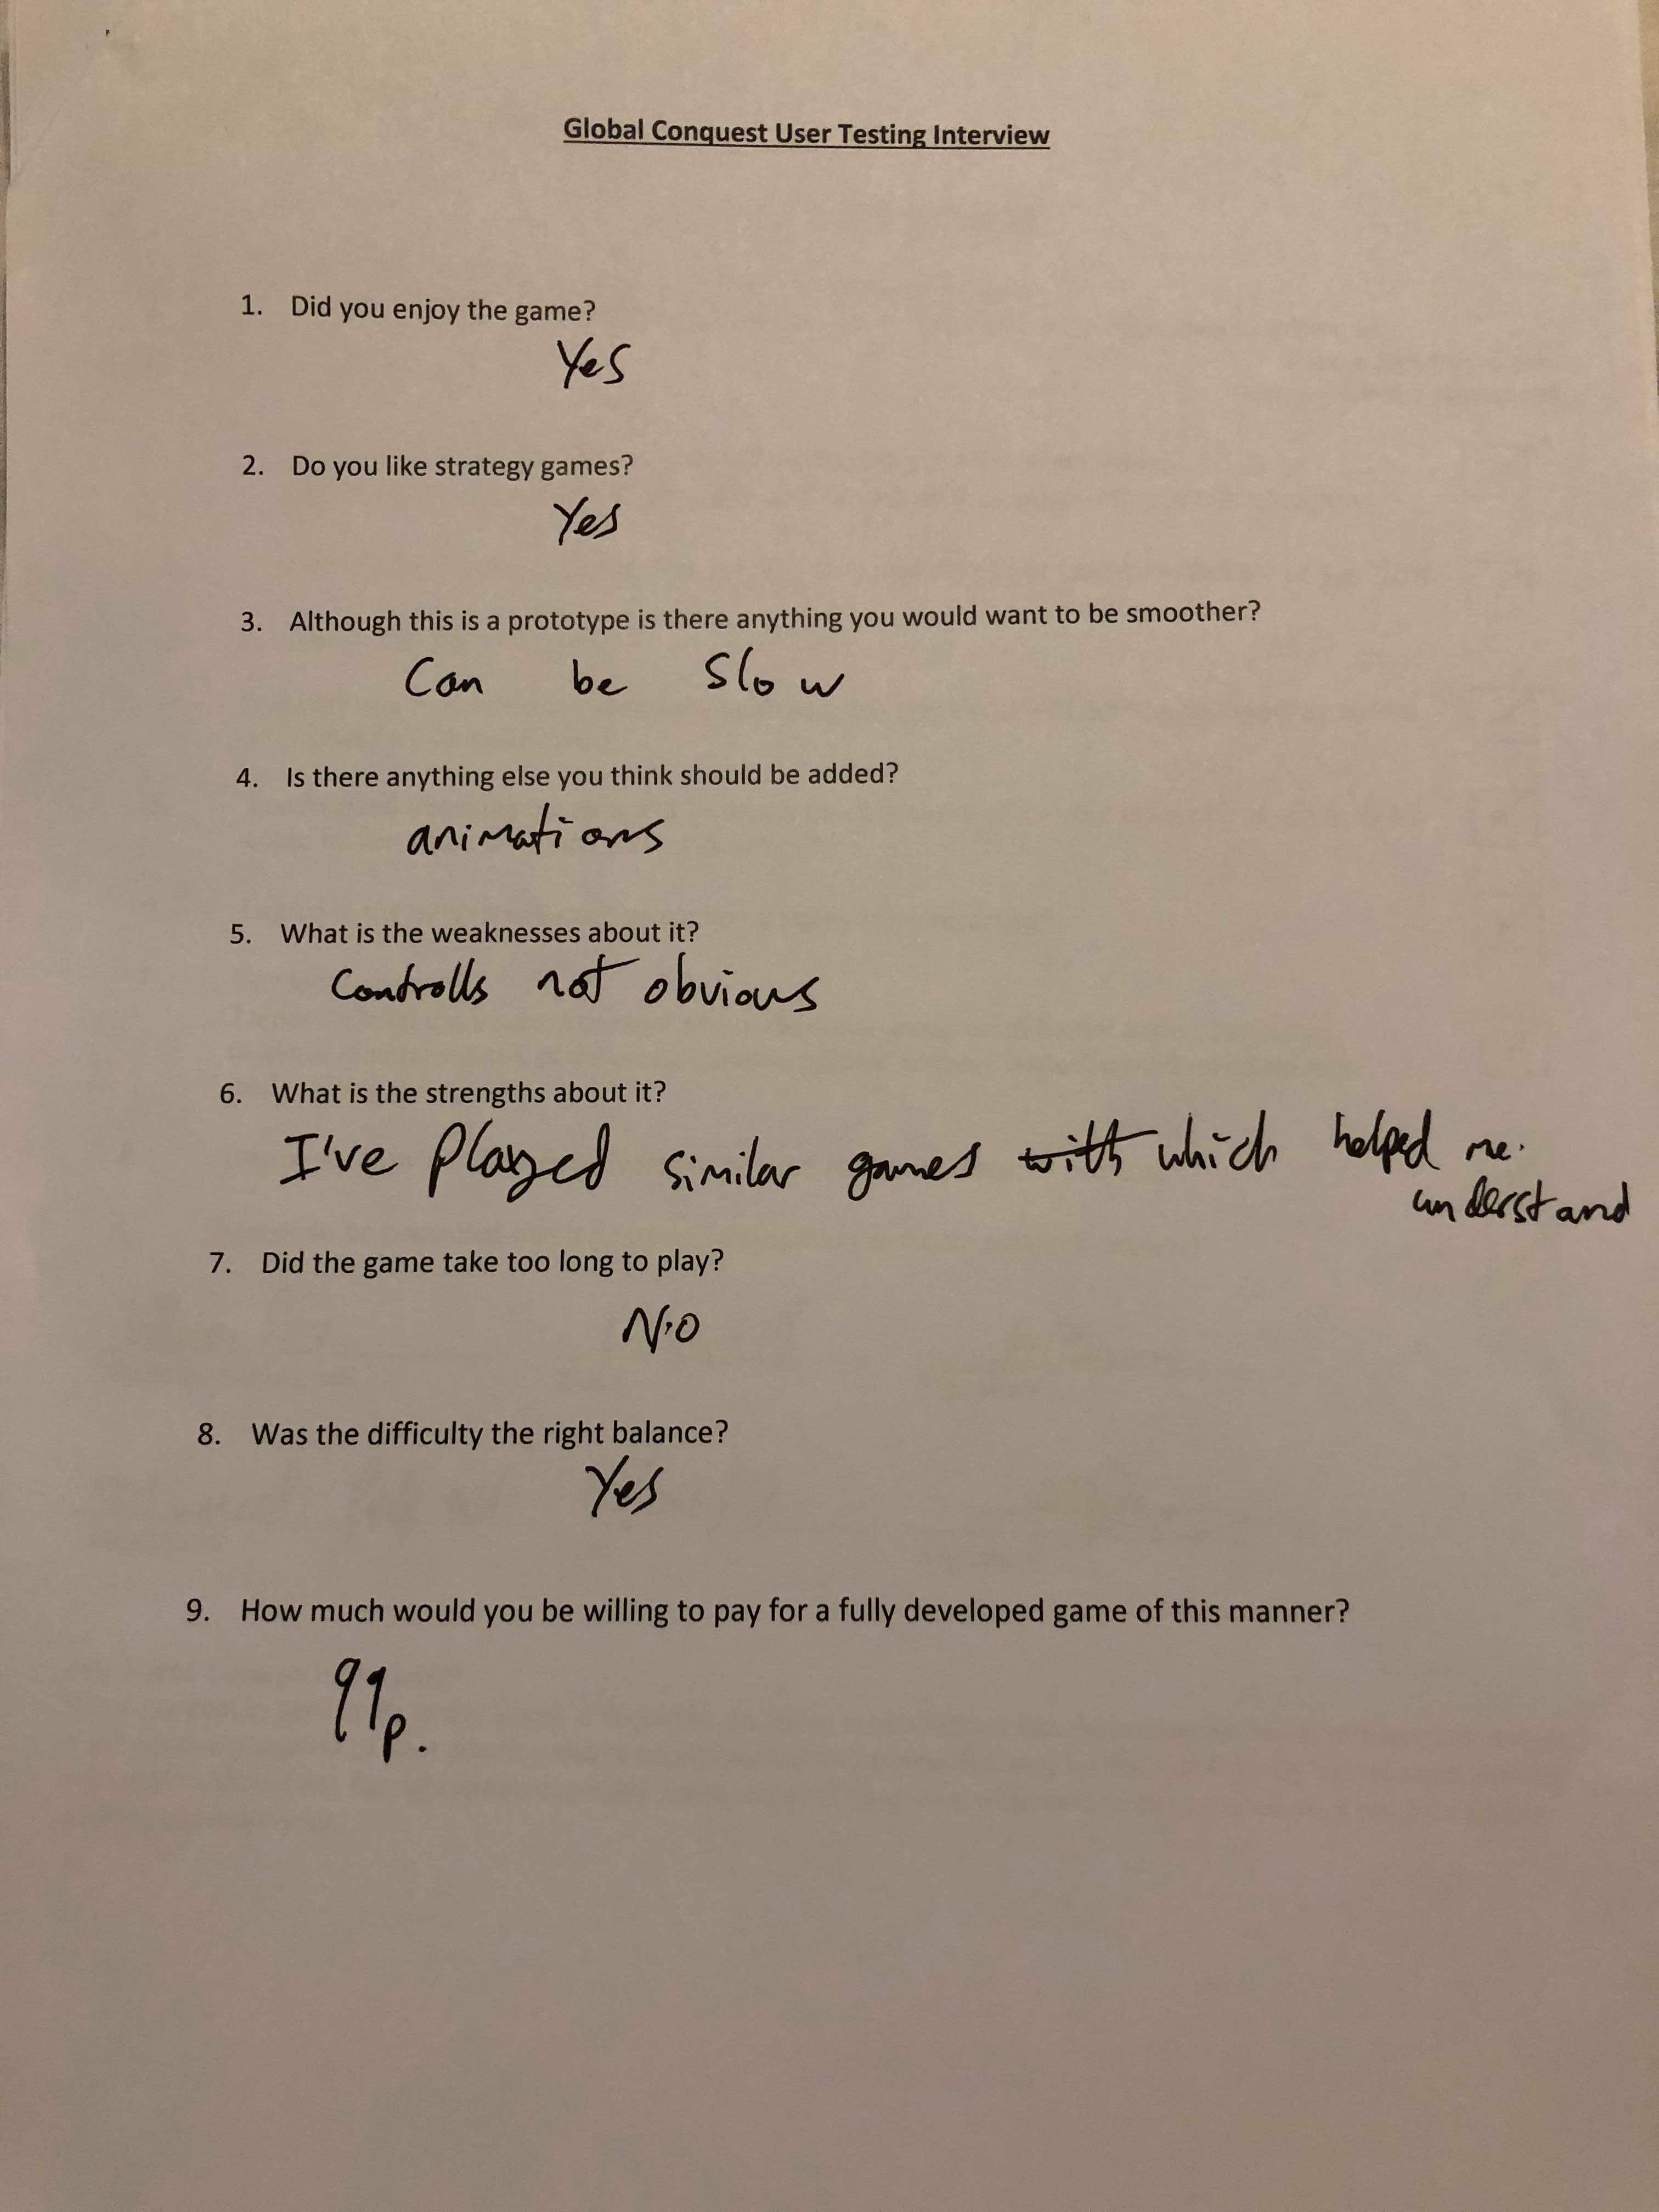 Global Conquest User Testing Interview
1. Did you enjoy the game?
Yes
2. Do you like strategy games?
Yes
3. Although this is a prototype is there anything you would want to be smoother?
Can be slow
4. Is there anything else you think should be added?
animations
5. What is the weaknesses about it?
Controlls not obvious
6. What is the strengths about it?
I've played similar games with which helped me.
understand
7. Did the game take too long to play?
No
8. Was the difficulty the right balance?
Yes
9. How much would you be willing to pay for a fully developed game of this manner?
99p.